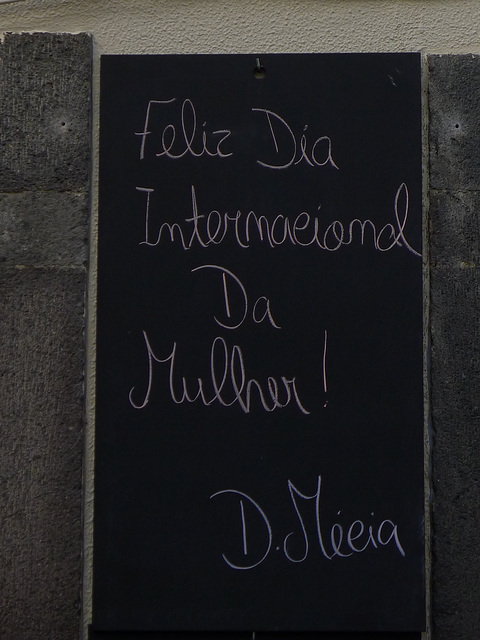 Feliz Dia
Internacional
Da
Mulher!
D. Mécia